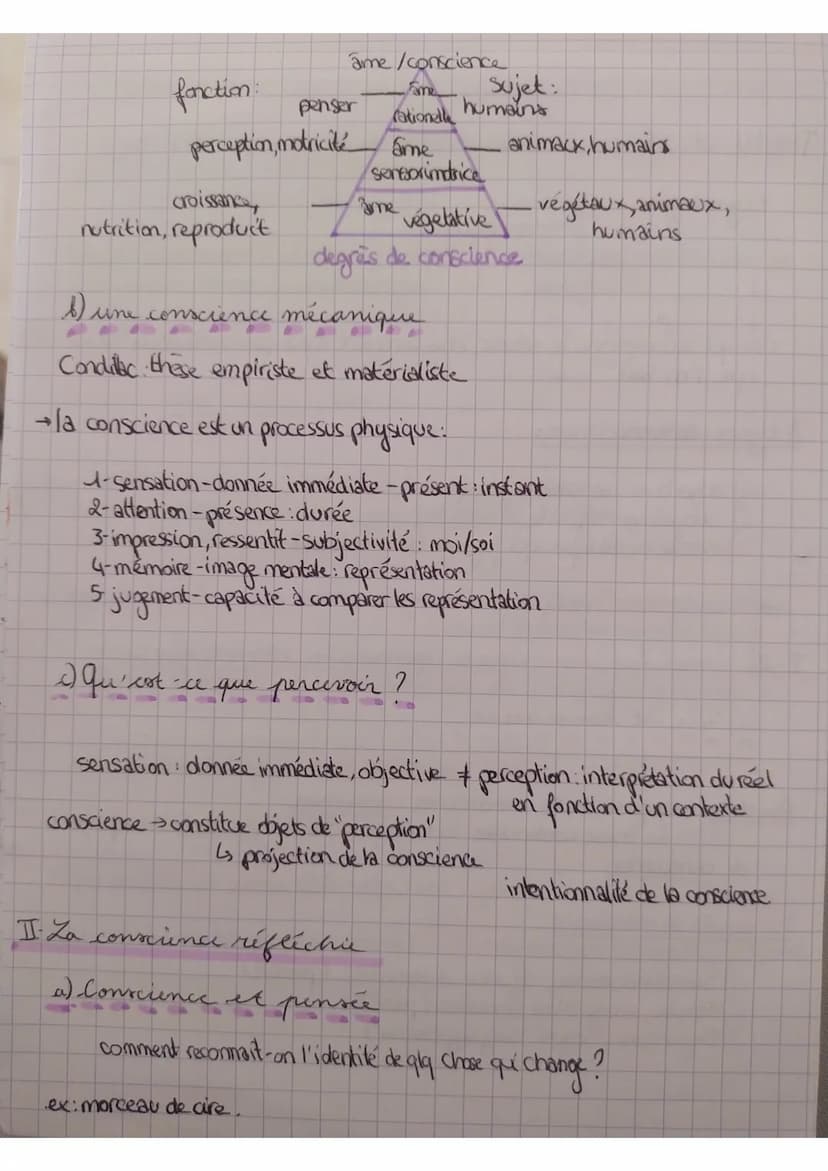 âme / conscience
fonction:
sujet:
penser
âme
rationelle
humains
perception, motricité
âme
sensorimotrice
animaux, humains
croissance,
nutrition, reproduct
âme
végétative
végétaux, animaux,
humains
degrès de conscience
b) une conscience mécanique
Condillac: thèse empiriste et matérialiste
→ la conscience est un processus physique:
1-sensation-donnée immédiate - présent: instant
2-attention - présence: durée
3-impression, ressentit - subjectivité: moi/soi
4-mémoire - image mentale: représentation
5 jugement - capacité à comparer les représentation
c) Qu'est-ce que percevoir ?
sensation: donnée immédiate, objective ≠ perception: interprétation du réel
en fonction d'un contexte
conscience → constitue objets de "perception"
↳ projection de la conscience
intentionnalité de la conscience
II- La conscience réfléchie
a) Conscience et pensée
comment reconnait-on l'identité de qlq chose qui change ?
ex: morceau de cire.